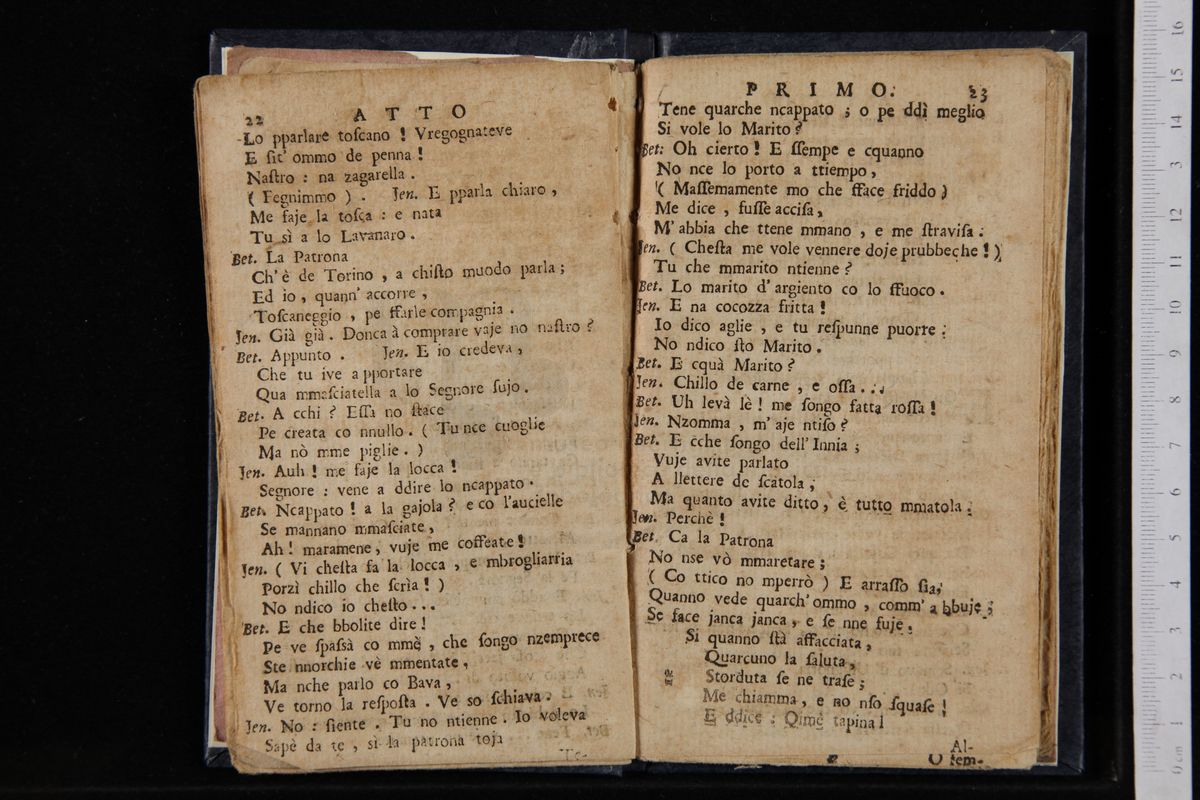 22 ATTO
Lo pparlare toſcano ! Vregognateve
E ſit' ommo de penna !
Naſtro : na zagarella .
( Fegnimmo ) . Jen. E pparla chiaro ,
Me faje la toſca : e nata
Tu sì a lo Lavanaro .
Bet. La Patrona
Ch'è de Torino , a chiſto muodo parla ;
Ed io , quann' accorre ,
Toſcaneggio , pe ffarle compagnia .
Jen. Già già . Donca à comprare vaje no naſtro ?
Bet. Appunto . Jen. E io credeva ,
Che tu ive a pportare
Qua mmaſciatella a lo Segnore ſujo .
Bet. A cchi ? Eſſa no ſtace
Pe creata co nnullo . ( Tu nce cuoglie
Ma nò mme piglie . )
Jen. Auh ! me faje la locca !
Segnore : vene a ddire lo ncappato .
Bet. Ncappato ! a la gajola ? e co l'aucielle
Se mannano mmaſciate ,
Ah ! maramene , vuje me coffeate !
Jen. ( Vi cheſta fa la locca , e mbrogliarria
Porzì chillo che ſcrìa ! )
No ndico io cheſto ...
Bet. E che bbolite dire !
Pe ve ſpaſsà co mmè , che ſongo nzemprece
Ste nnorchie vè mmentate ,
Ma nche parlo co Bava ,
Ve torno la reſpoſta . Ve so ſchiava .
Jen. No : ſiente . Tu no ntienne . Io voleva
Sapè da te , sì la patrona toja
Te-
PRIMO. 23
Tene quarche ncappato ; o pe ddì meglio
Si vole lo Marito ?
Bet: Oh cierto ! E ſſempe e cquanno
No nce lo porto a ttiempo ,
( Maſſemamente mo che fface friddo )
Me dice , fuſſe acciſa ,
M'abbia che ttene mmano , e me ſtraviſa :
Jen. ( Cheſta me vole vennere doje prubbeche ! )
Tu che mmarito ntienne ?
Bet. Lo marito d'argiento co lo ffuoco .
Jen. E na cocozza fritta !
Io dico aglie , e tu reſpunne puorre :
No ndico ſto Marito .
Bet. E cquà Marito ?
Jen. Chillo de carne , e oſſa ...
Bet. Uh levà lè ! me ſongo fatta roſſa !
Jen. Nzomma , m'aje ntiſo ?
Bet. E cche ſongo dell'Innia ;
Vuje avite parlato
A llettere de ſcatola ;
Ma quanto avite ditto , è tutto mmatola ;
Jen. Perchè !
Bet. Ca la Patrona
No nse vò mmaretare ;
( Co ttico no mperrò ) E arraſſo ſia ,
Quanno vede quarch'ommo , comm' a bbuje ;
Se face janca janca , e ſe nne fuje .
Si quanno ſtà affacciata ,
Quarcuno la ſaluta ,
Storduta ſe ne traſe ;
Me chiamma , e no nſo ſquaſe !
E ddice : Oimè tapina !
Al-
O ſem-